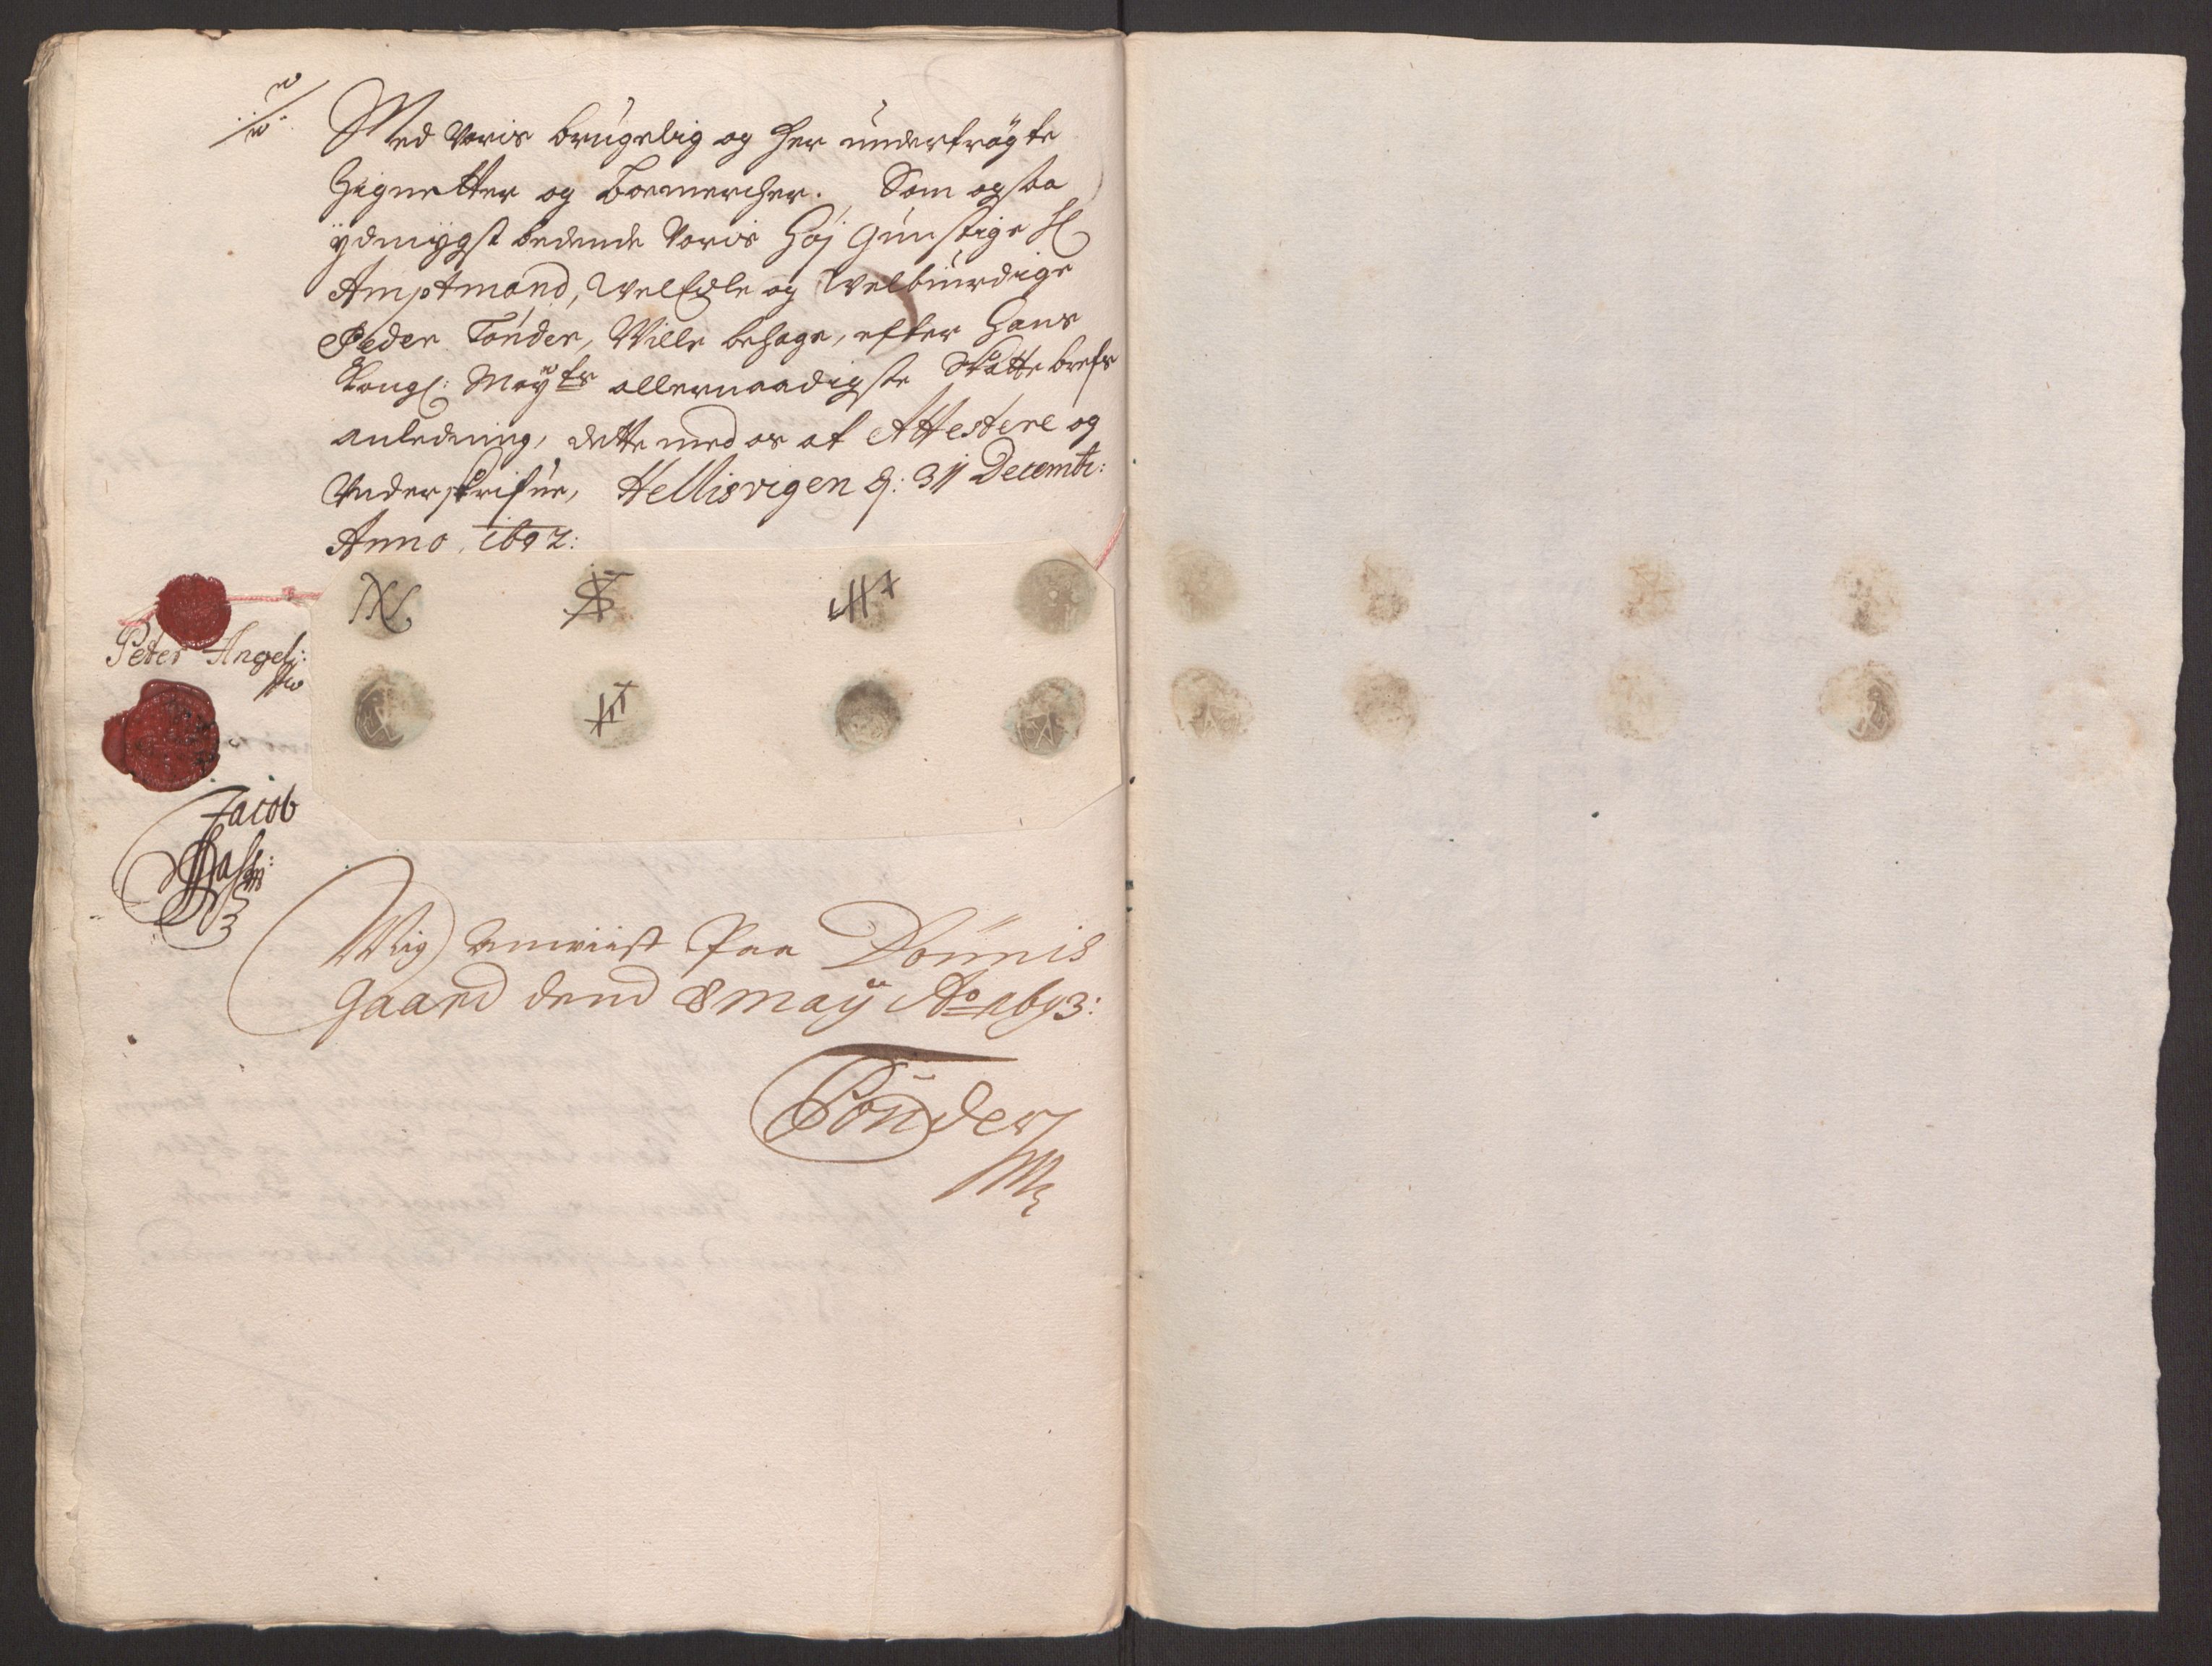 Med voris brugelig og her undertrögte
Signetter og boemercher. Som ogsaa
ydmygst bedende voris Höj Gunstige H
Amptmand, WelEdle og Welbiurdige
Peder Tönder, Wille behage, efter Hans
Kongl: Mayts allernaadigste Skatte brefs
anledning, dette med os at Attestere og
Underskrifue, Hellisvigen d: 31 Decembr:
Anno 1692:
Peter Angel:
Jacob
Wig anviist Paa Dönnis
gaard dend 8 Maÿ Ao 1693:
Tönder